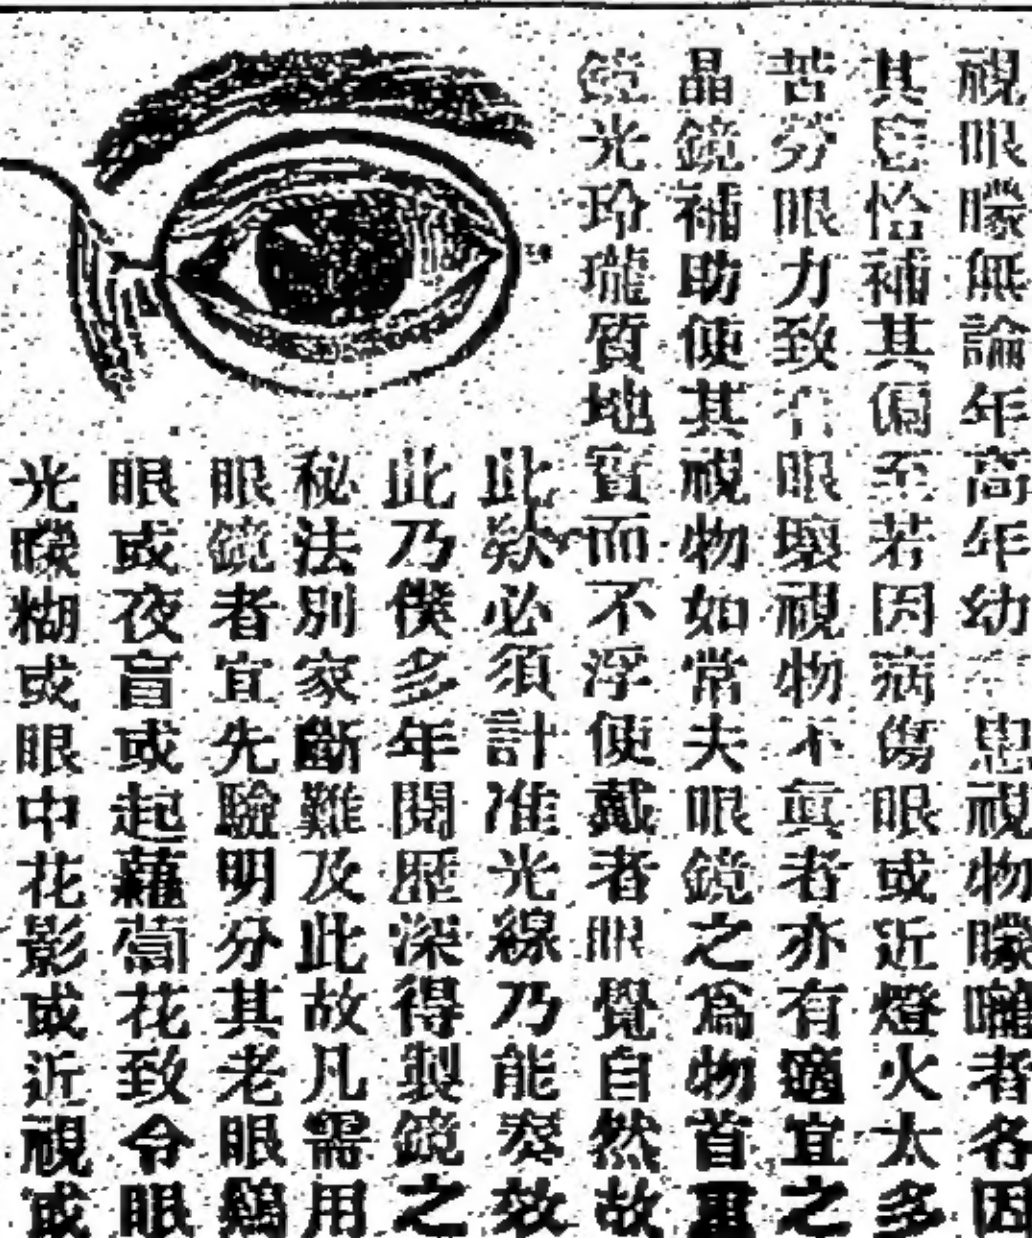 視眼矇無論年高年幼患視物矇矓者各因
其宜恰補其偏至若因病傷眼或近燈火太多
苦勞眼力致眼壞視物不真者亦有適宜之
晶鏡補助使其視物如常夫眼鏡之為物首重
鏡光玲瓏質地實而不浮使戴者眼覺自然故
此欵必須計准光線乃能奏效
此乃僕多年閱歷深得製鏡之
秘法別家斷難及此故凡需用
眼鏡者宜先驗明分其老眼鷄
眼或夜盲或起蘿蔔花致令眼
光矇糊或眼中花影或近視或